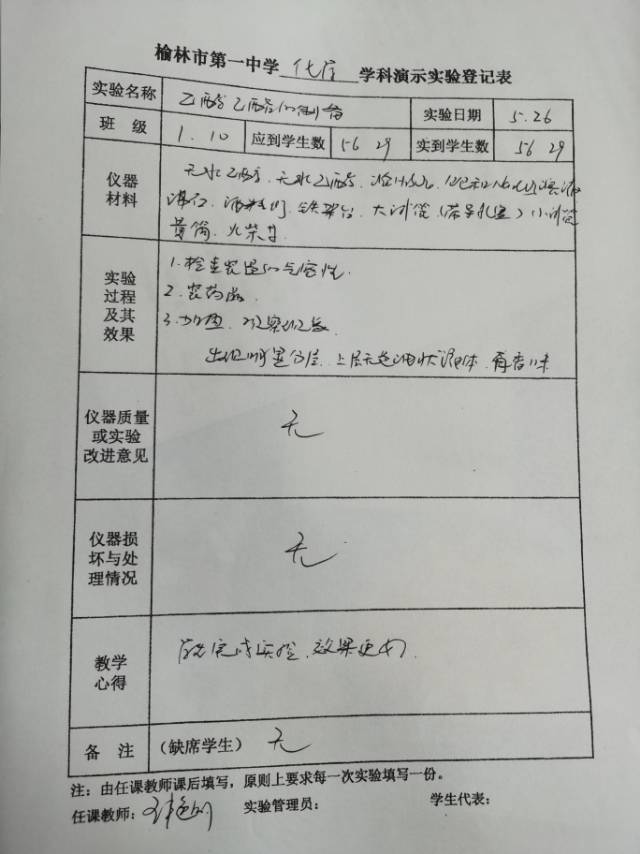 榆林市第一中学 化学 学科演示实验登记表
实验名称 乙酸乙酯的制备 实验日期 5.26
班 级 1.10 应到学生数 56 29 实到学生数 56 29
仪器材料 无水乙醇、无水乙酸、浓H₂SO₄、饱和Na₂CO₃溶液
酒精灯、铁架台、大试管(带导气管)小试管
量筒、火柴
实验过程及其效果 1.检查装置的气密性.
2.装药品
3.加热、观察现象
出现明显分层、上层无色油状液体、有香味
仪器质量或实验改进意见 无
仪器损坏与处理情况 无
教学心得 完成实验、效果更好
备 注 (缺席学生) 无
注：由任课教师课后填写，原则上要求每一次实验填写一份。
任课教师： 实验管理员： 学生代表：